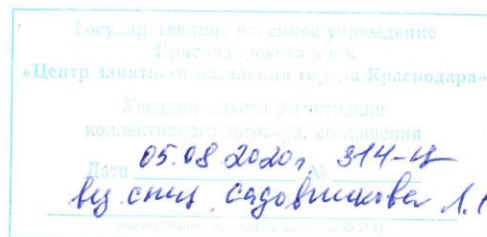 Государственное казенное учреждение
Краснодарского края
«Центр занятости населения города Краснодара»
Уведомительная регистрация
коллективного договора, соглашения
Дата 05.08.2020г. № 314-ц
вед. спец. Садовникова Л.